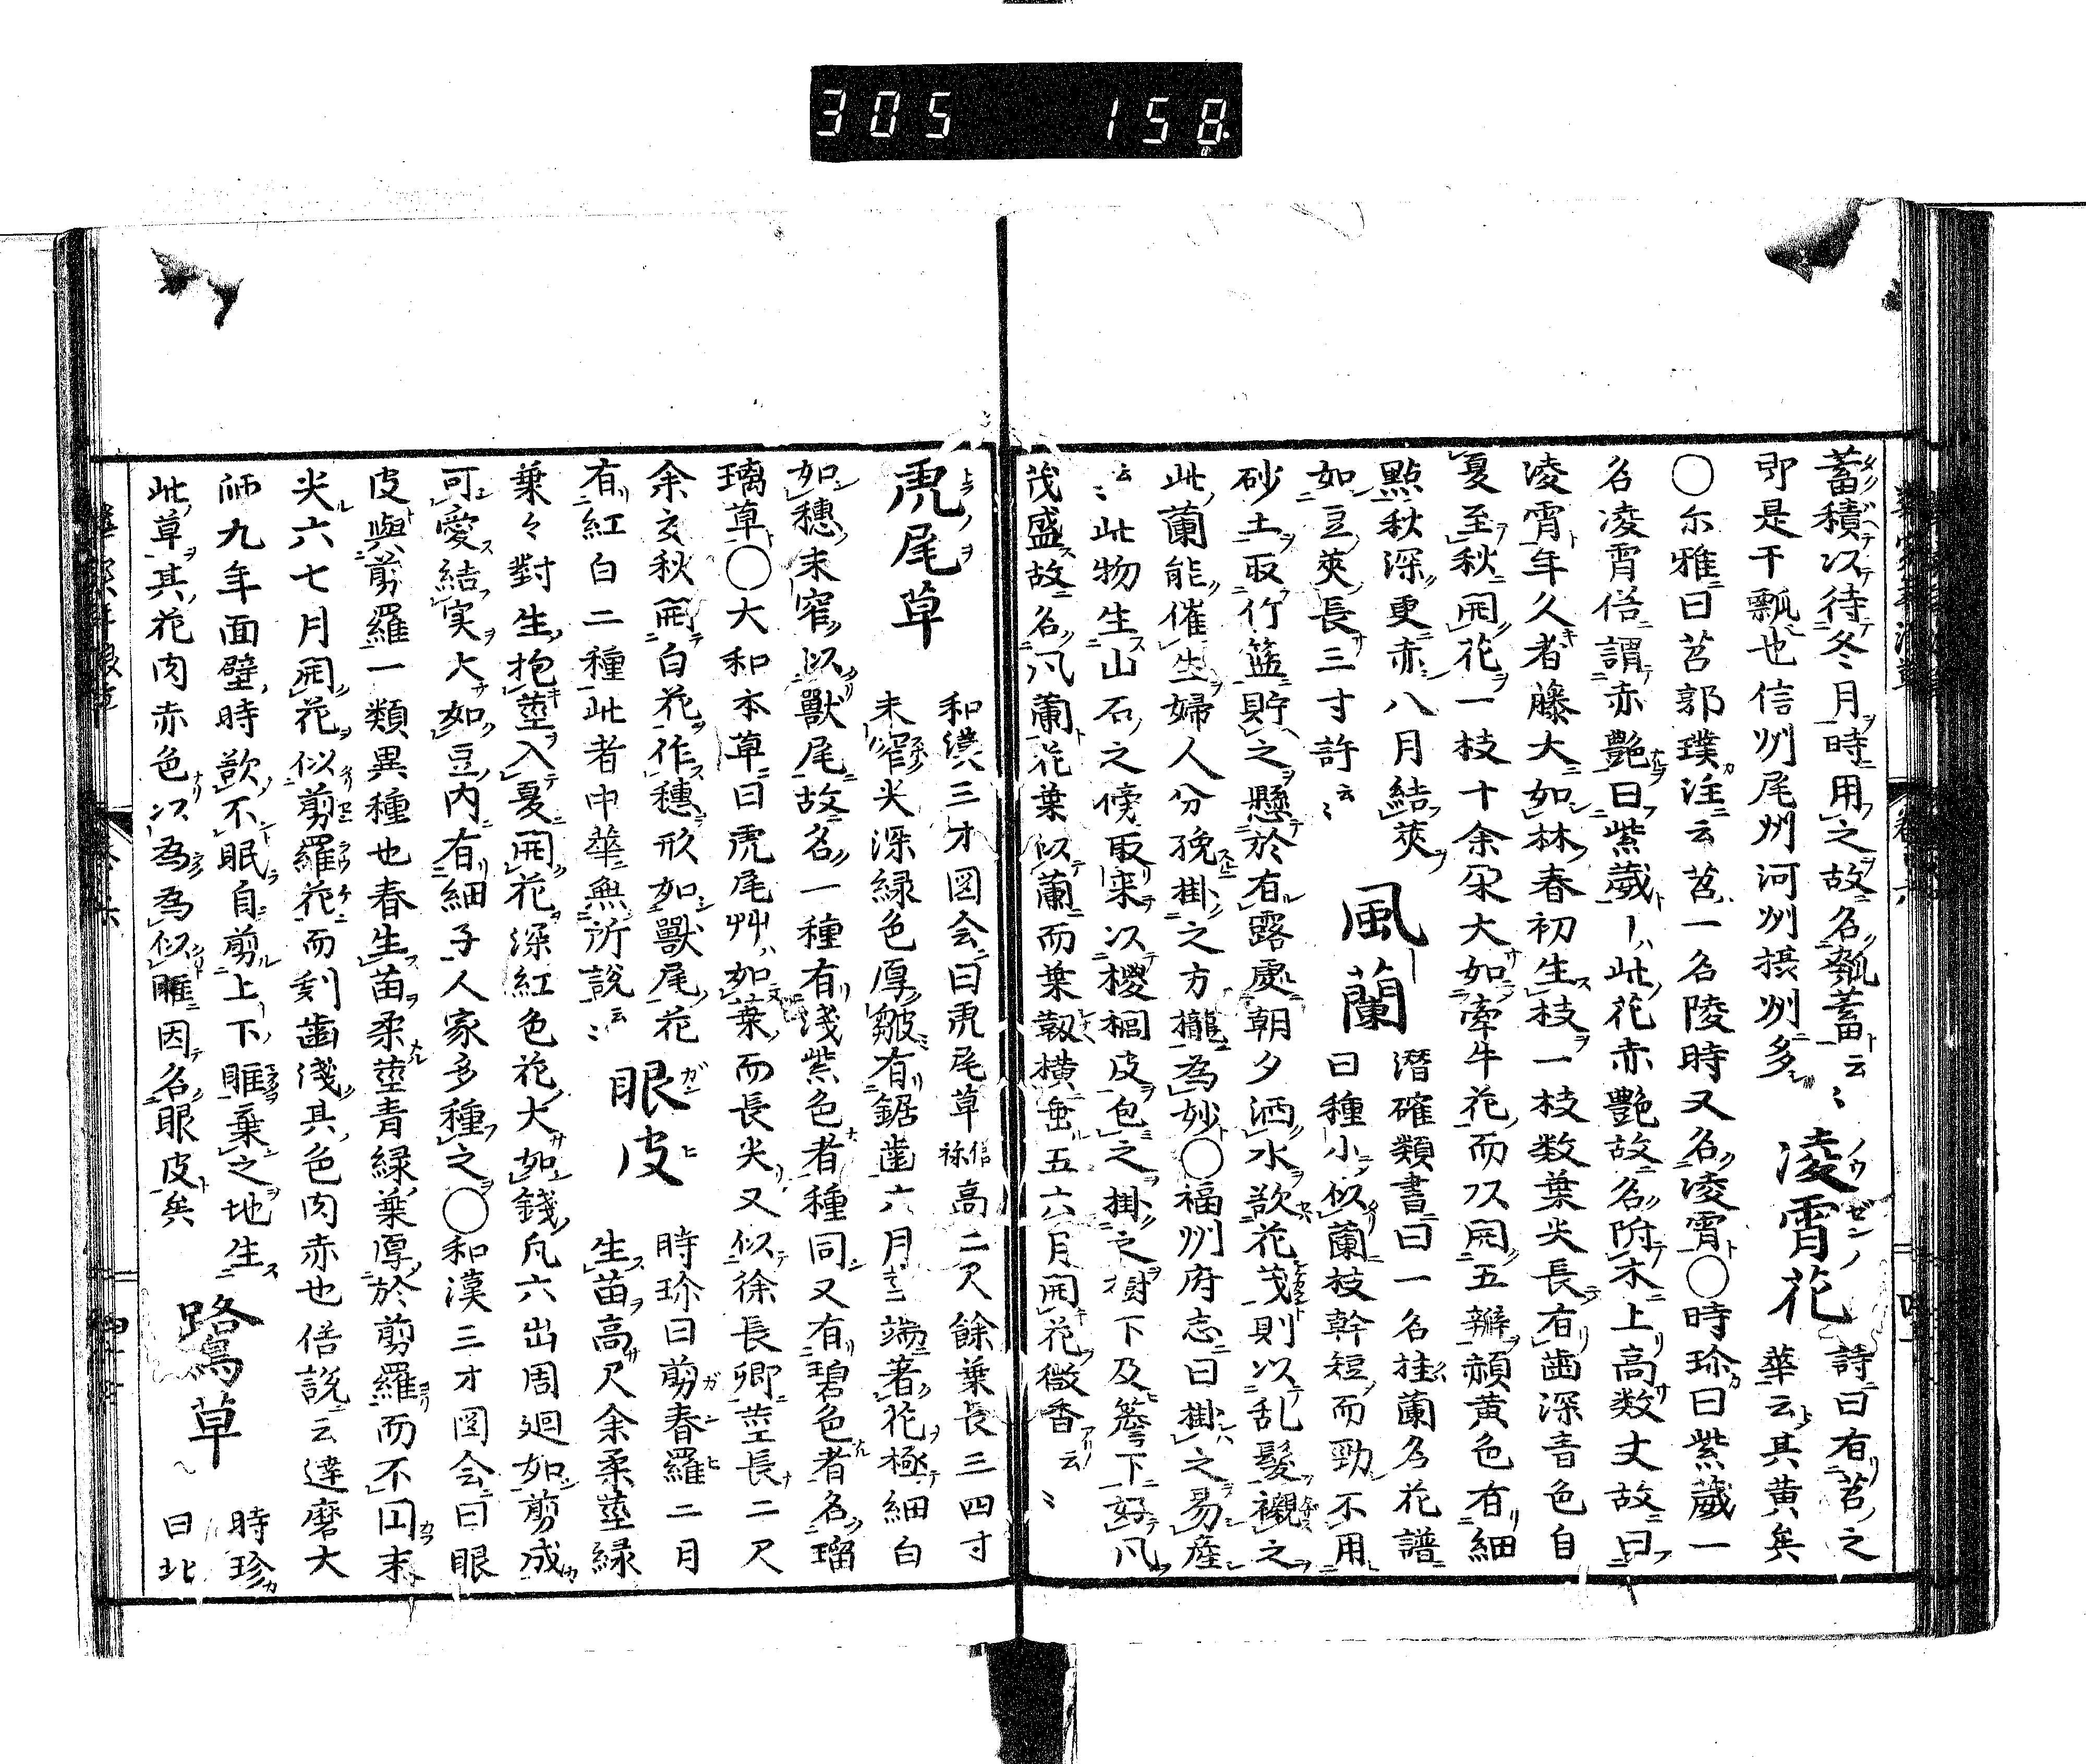 305 158
蓄積以待冬月時用之故名瓢蓄云〻
即是干瓢也信州尾州河州摂州多
凌霄花
詩曰有苕之
華云其黄矣
○尓雅曰苕郭璞注云苕一名陵時又名凌霄○時珍曰紫葳一
名凌霄俗謂赤艶曰紫葳此花赤艶故名附木上高数丈故曰
凌霄年久者藤大如林春初生枝一枝数葉尖長有歯深青色自
夏至秋開花一枝十余朶大如牽牛花而以開五瓣赬黄色有細
點秋深更赤八月結莢
如豆莢長三寸許云〻
風蘭
潜確類書曰一名挂蘭名花譜
曰種小似蘭枝幹短而勁不用
砂土取竹籃貯之懸於有露處朝夕洒水欲花茂則以乱髮襯之
此蘭能催生婦人分娩掛之方櫳為妙○福州府志曰掛之易産
云〻此物生山石之傍取来以椶櫚皮包之掛之樹下及簷下下好凡
茂盛故名凡蘭花葉似蘭而葉靱横岳五六月開花微香云〻
虎尾草
和漢三才図会曰虎尾草高二尺餘葉長三四寸
末窄尖深緑色厚皺有鋸歯六月莖端著花極細白
如穂末窄似獣尾故名一種有浅紫色者種同又有碧色者名瑠
璃草○大和本草曰虎尾艸如葉而長尖又似徐長卿莖長二尺
余亥秋開白花作穂形如獣尾花
有紅白二種此者中華無所説云〻
眼皮
時珍曰剪春羅二月
生苗高尺余柔莖緑
葉々對生抱莖入夏開花深紅色花大如錢凡六出周廻如剪成
可愛結実大如豆内有細子人家多種之○和漢三才図会曰眼
皮與剪羅一類異種也春生苗柔莖青緑葉厚於剪羅而不円末
尖六七月開花似剪羅花而刻歯浅其色肉赤也俗説云達磨大
師九年面壁時欲不眠自剪上下眶棄之地生
此草其花肉赤色以為為似眶因名眼皮矣
鷺草
時珍
曰北